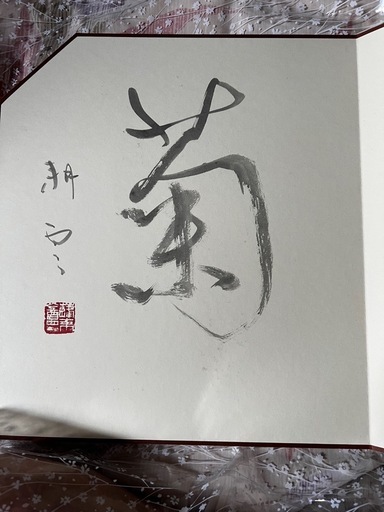 菊
耕雲